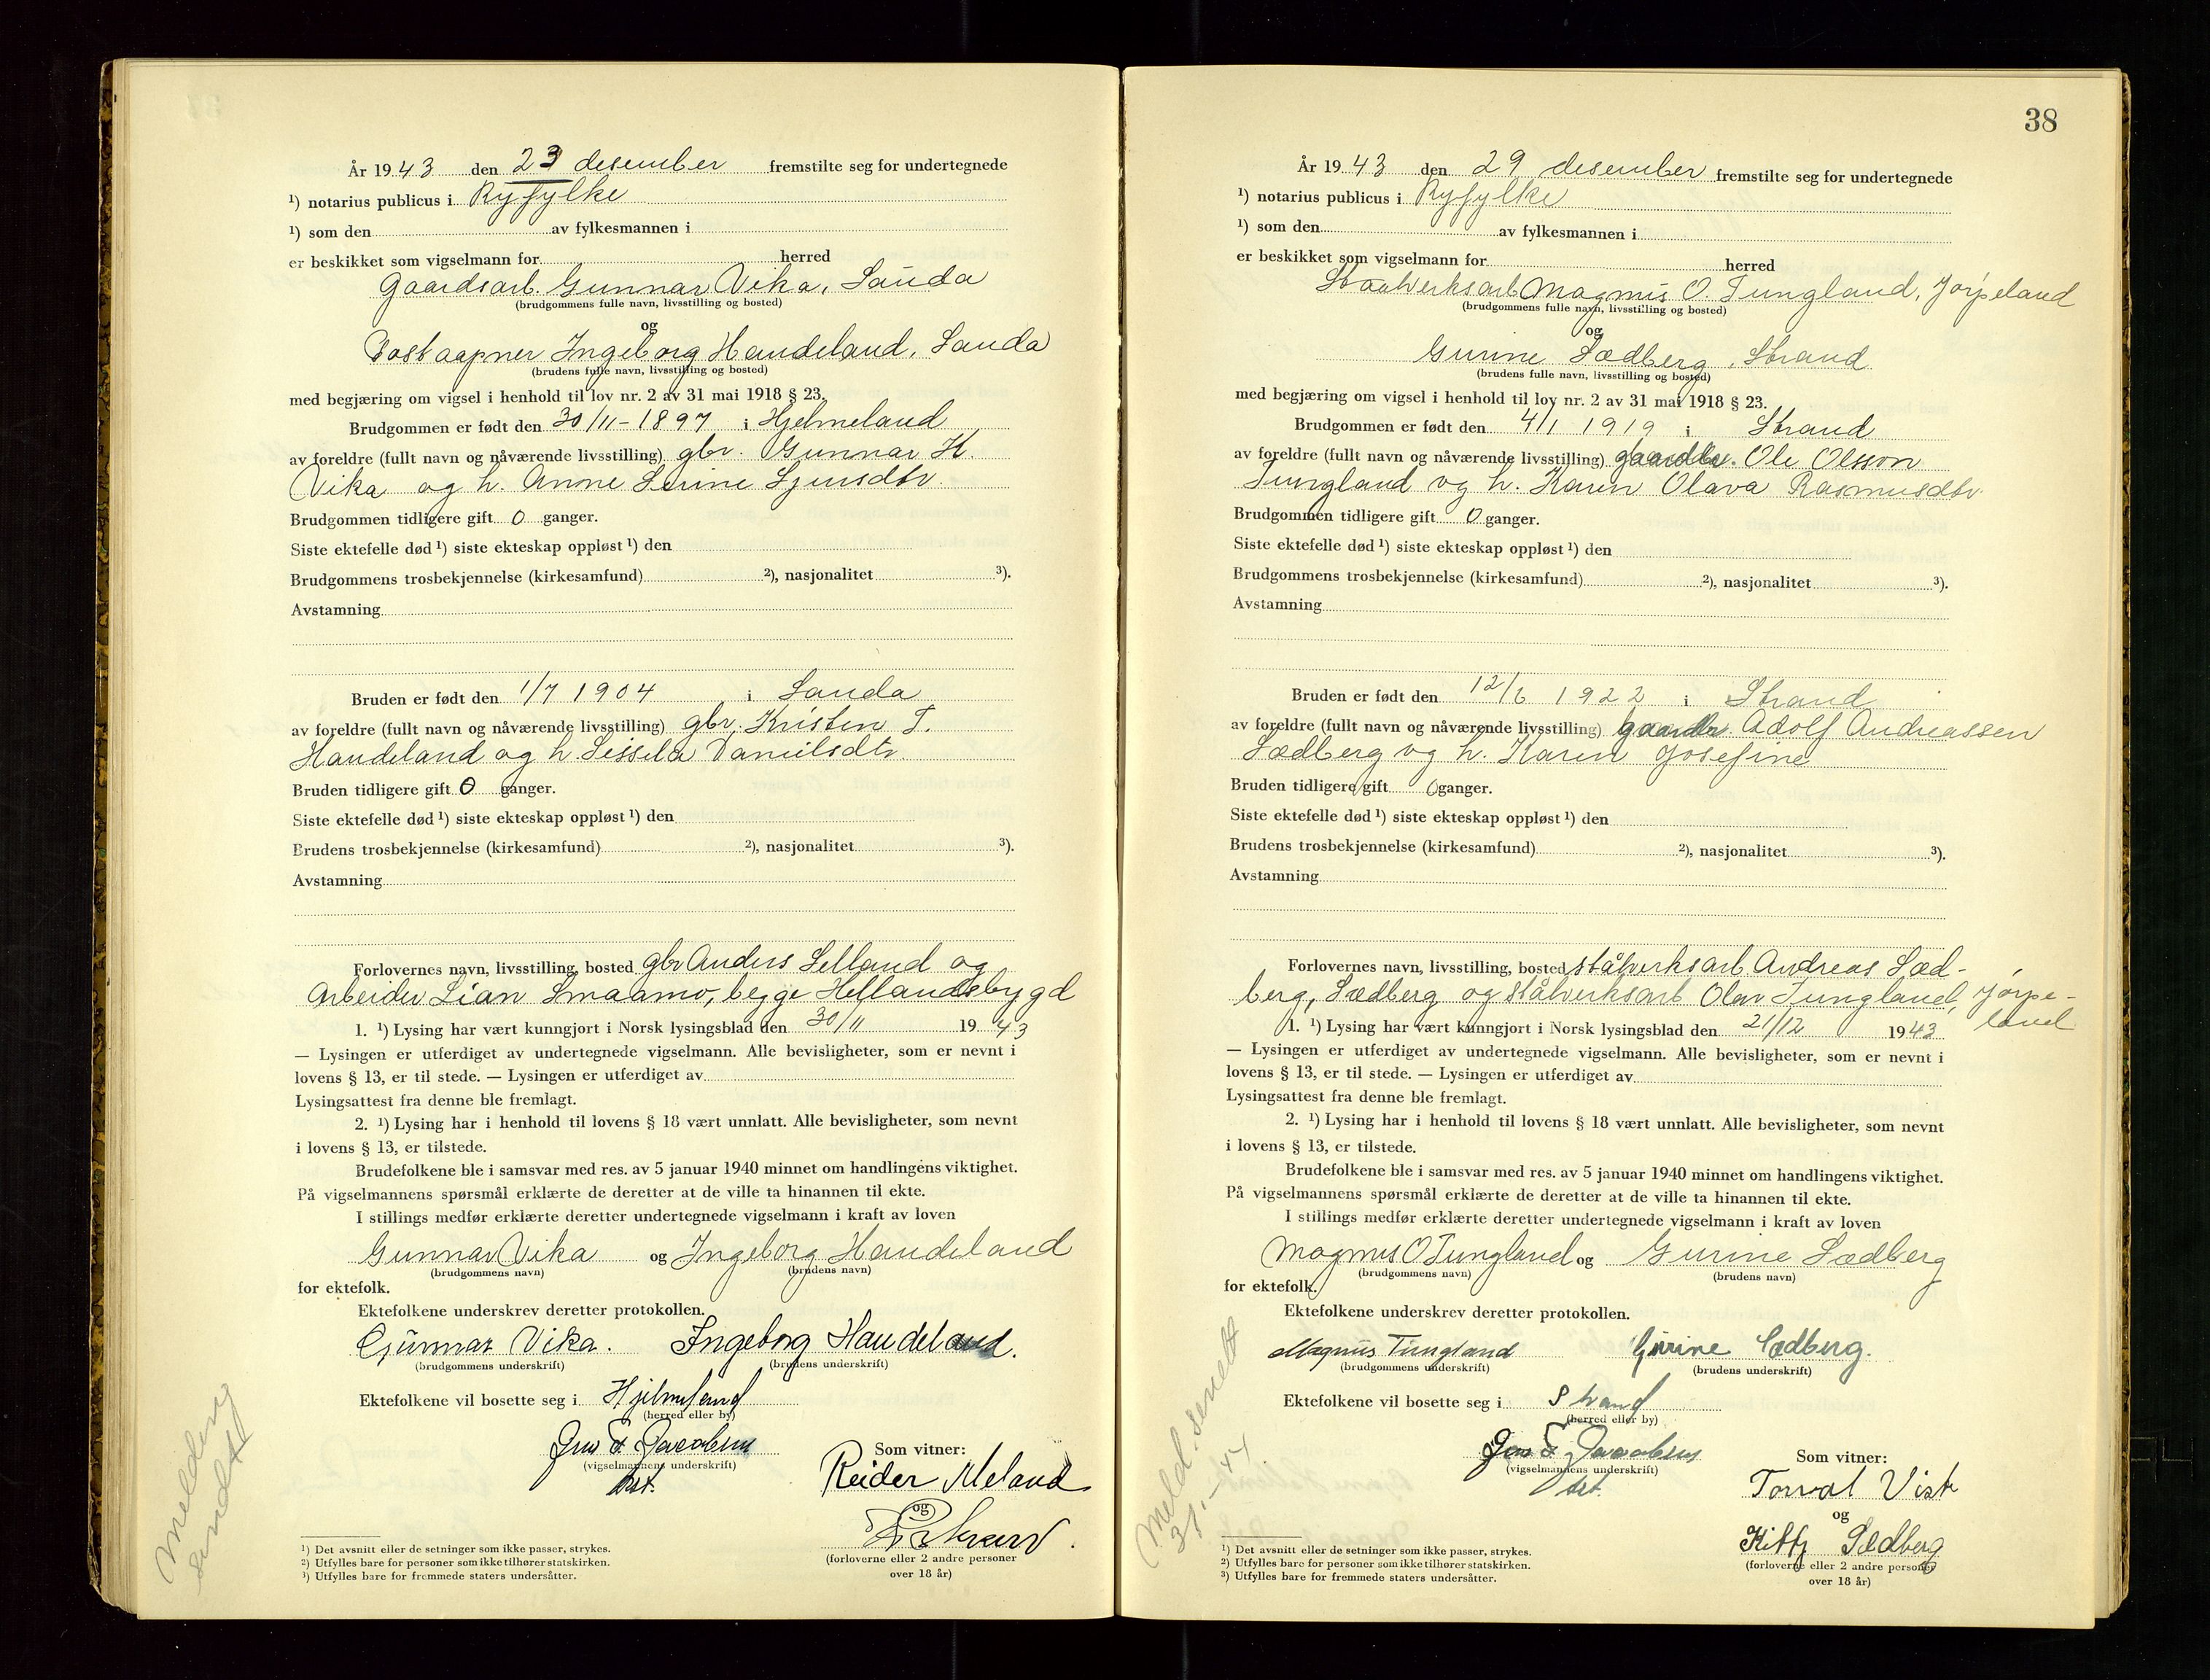 År 1943 den 23 desember fremstilte seg for undertegnede
¹) notarius publicus i Ryfylke
¹) som den av fylkesmannen i
er beskikket som vigselmann for herred
Gaardsarb. Gunnar Vika, Sauda
(brudgommens fulle navn, livsstilling og bosted)
og
Postaapner Ingeborg Handeland, Sauda
(brudens fulle navn, livsstilling og bosted)
med begjæring om vigsel i henhold til lov nr. 2 av 31 mai 1918 § 23.
Brudgommen er født den 30/11-1897 i Hjelmeland
av foreldre (fullt navn og nåværende livsstilling) gbr. Gunnar H.
Vika og h. Anne Serine Sjursdtr.
Brudgommen tidligere gift 0 ganger.
Siste ektefelle død ¹) siste ekteskap oppløst ¹) den
Brudgommens trosbekjennelse (kirkesamfund) ²), nasjonalitet ³).
Avstamning
Bruden er født den 1/7 1904 i Sauda
av foreldre (fullt navn og nåværende livsstilling) gbr. Kristen T.
Handeland og h. Sissela Danielsdtr.
Bruden tidligere gift 0 ganger.
Siste ektefelle død ¹) siste ekteskap oppløst ¹) den
Brudens trosbekjennelse (kirkesamfund) ²), nasjonalitet ³).
Avstamning
Forlovernes navn, livsstilling, bosted gbr Anders Selland og
Arbeider Sian Smaamo, begge Hellandsbygd
1. ¹) Lysing har vært kunngjort i Norsk lysingsblad den 30/11 1943
— Lysingen er utferdiget av undertegnede vigselmann. Alle bevisligheter, som er nevnt i
lovens § 13, er til stede. — Lysingen er utferdiget av
Lysingsattest fra denne ble fremlagt.
2. ¹) Lysing har i henhold til lovens § 18 vært unnlatt. Alle bevisligheter, som nevnt
i lovens § 13, er tilstede.
Brudefolkene ble i samsvar med res. av 5 januar 1940 minnet om handlingens viktighet.
På vigselmannens spørsmål erklærte de deretter at de ville ta hinannen til ekte.
I stillings medfør erklærte deretter undertegnede vigselmann i kraft av loven
Gunnar Vika og Ingeborg Handeland
(brudgommens navn) (brudens navn)
for ektefolk.
Ektefolkene underskrev deretter protokollen.
Gunnar Vika. Ingeborg Handeland.
(brudgommens underskrift) (brudens underskrift)
Ektefolkene vil bosette seg i Hjelmeland
(herred eller by)
Jacobsen
(vigselmannens underskrift)
Som vitner:
Reider Meland
og
(forloverne eller 2 andre personer
over 18 år)
¹) Det avsnitt eller de setninger som ikke passer, strykes.
²) Utfylles bare for personer som ikke tilhører statskirken.
³) Utfylles bare for fremmede staters undersåtter.
Melding
sendt
38
År 1943 den 29 desember fremstilte seg for undertegnede
¹) notarius publicus i Ryfylke
¹) som den av fylkesmannen i
er beskikket som vigselmann for herred
Staalverksarb Magnus O. Tungland, Jørpeland
(brudgommens fulle navn, livsstilling og bosted)
og
Gurine Sædberg, Strand
(brudens fulle navn, livsstilling og bosted)
med begjæring om vigsel i henhold til lov nr. 2 av 31 mai 1918 § 23.
Brudgommen er født den 4/1 1919 i Strand
av foreldre (fullt navn og nåværende livsstilling) gaardbr. Ole Olsson
Tungland og h. Karen Olava Rasmusdtr.
Brudgommen tidligere gift 0 ganger.
Siste ektefelle død ¹) siste ekteskap oppløst ¹) den
Brudgommens trosbekjennelse (kirkesamfund) ²), nasjonalitet ³).
Avstamning
Bruden er født den 12/6 1922 i Strand
av foreldre (fullt navn og nåværende livsstilling) gaardbr. Adolf Andreassen
Sædberg og h. Karen Josefine
Bruden tidligere gift 0 ganger.
Siste ektefelle død ¹) siste ekteskap oppløst ¹) den
Brudens trosbekjennelse (kirkesamfund) ²), nasjonalitet ³).
Avstamning
Forlovernes navn, livsstilling, bosted stålverksarb Andreas Sæd-
berg, Sædberg og stålverksarb Olav Tungland, Jørpe-
land
1. ¹) Lysing har vært kunngjort i Norsk lysingsblad den 21/12 1943
— Lysingen er utferdiget av undertegnede vigselmann. Alle bevisligheter, som er nevnt i
lovens § 13, er til stede. — Lysingen er utferdiget av
Lysingsattest fra denne ble fremlagt.
2. ¹) Lysing har i henhold til lovens § 18 vært unnlatt. Alle bevisligheter, som nevnt
i lovens § 13, er tilstede.
Brudefolkene ble i samsvar med res. av 5 januar 1940 minnet om handlingens viktighet.
På vigselmannens spørsmål erklærte de deretter at de ville ta hinannen til ekte.
I stillings medfør erklærte deretter undertegnede vigselmann i kraft av loven
Magnus O Tungland og Gurine Sædberg
(brudgommens navn) (brudens navn)
for ektefolk.
Ektefolkene underskrev deretter protokollen.
Magnus Tungland Gurine Sædberg.
(brudgommens underskrift) (brudens underskrift)
Ektefolkene vil bosette seg i Strand
(herred eller by)
Jacobsen
(vigselmannens underskrift)
Som vitner:
Torval Vist
og
Kitty Sædberg
(forloverne eller 2 andre personer
over 18 år)
¹) Det avsnitt eller de setninger som ikke passer, strykes.
²) Utfylles bare for personer som ikke tilhører statskirken.
³) Utfylles bare for fremmede staters undersåtter.
Meld. sendt